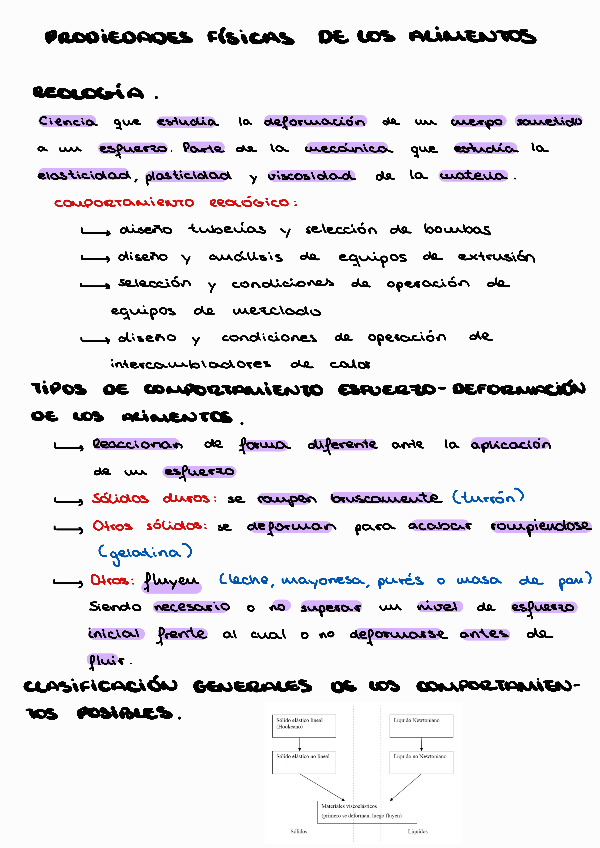 PROPIEDADES FÍSICAS DE LOS ALIMENTOS
REOLOGÍA.
Ciencia que estudia la deformación de un cuerpo sometido
a un esfuerzo. Parte de la mecánica que estudia la
elasticidad, plasticidad y viscosidad de la materia.
COMPORTAMIENTO REOLÓGICO:
→ diseño tuberías y selección de bombas
→ diseño y análisis de equipos de extrusión
→ selección y condiciones de operación de
equipos de mezclado
→ diseño y condiciones de operación de
intercambiadores de calor
TIPOS DE COMPORTAMIENTO ESFUERZO-DEFORMACIÓN
DE LOS ALIMENTOS.
→ Reaccionan de forma diferente ante la aplicación
de un esfuerzo
→ Sólidos duros: se rompen bruscamente (turrón)
→ Otros sólidos: se deforman para acabar rompiendose
(gelatina)
→ Otros: fluyen (leche, mayonesa, purés o masa de pan)
Siendo necesario o no superar un nivel de esfuerzo
inicial frente al cual o no deformarse antes de
fluir.
CLASIFICACIÓN GENERALES DE LOS COMPORTAMIEN-
TOS POSIBLES.
Sólido elástico lineal
(Hookeano)
Líquido Newtoniano
Sólido elástico no lineal
Líquido no Newtoniano
Materiales viscoelásticos
(primero se deforman, luego fluyen)
Sólidos
Líquidos